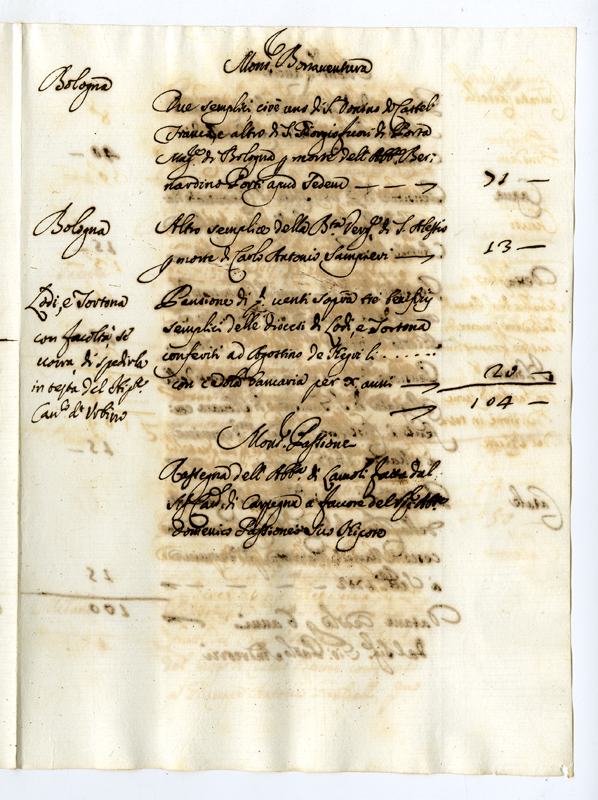 Mons.r Bonaventura
Bologna
Due semplici cioè uno di S. Donino di Castel
Franco, e altro di S. Giorgio fuori di Porta
Magg.e di Bologna p morte dell'Abb.e Ber=
nardino Porti apud Sedem — — — 71 —
Bologna
Altro semplice della Bta Verg.e di S. Alessio
p morte di Carlo Antonio Sampieri — 13 —
Lodi, e Tortona
con facoltà se
vorrà di spedirla
in testa del Nip.e
Can.co d'Urbino
Pensione di venti sopra tre beneficij
semplici delle diocesi di Lodi, e Tortona
conferiti ad Agostino de
con cedola bancaria per x anni — 20 —
104 —
Mons.r Passione
Rassegna dell'Abb.a di fatta dal
Sig.r Card. di Carpegna a favore del Sig.r Abb.e
Domenico Passionei suo Nipote